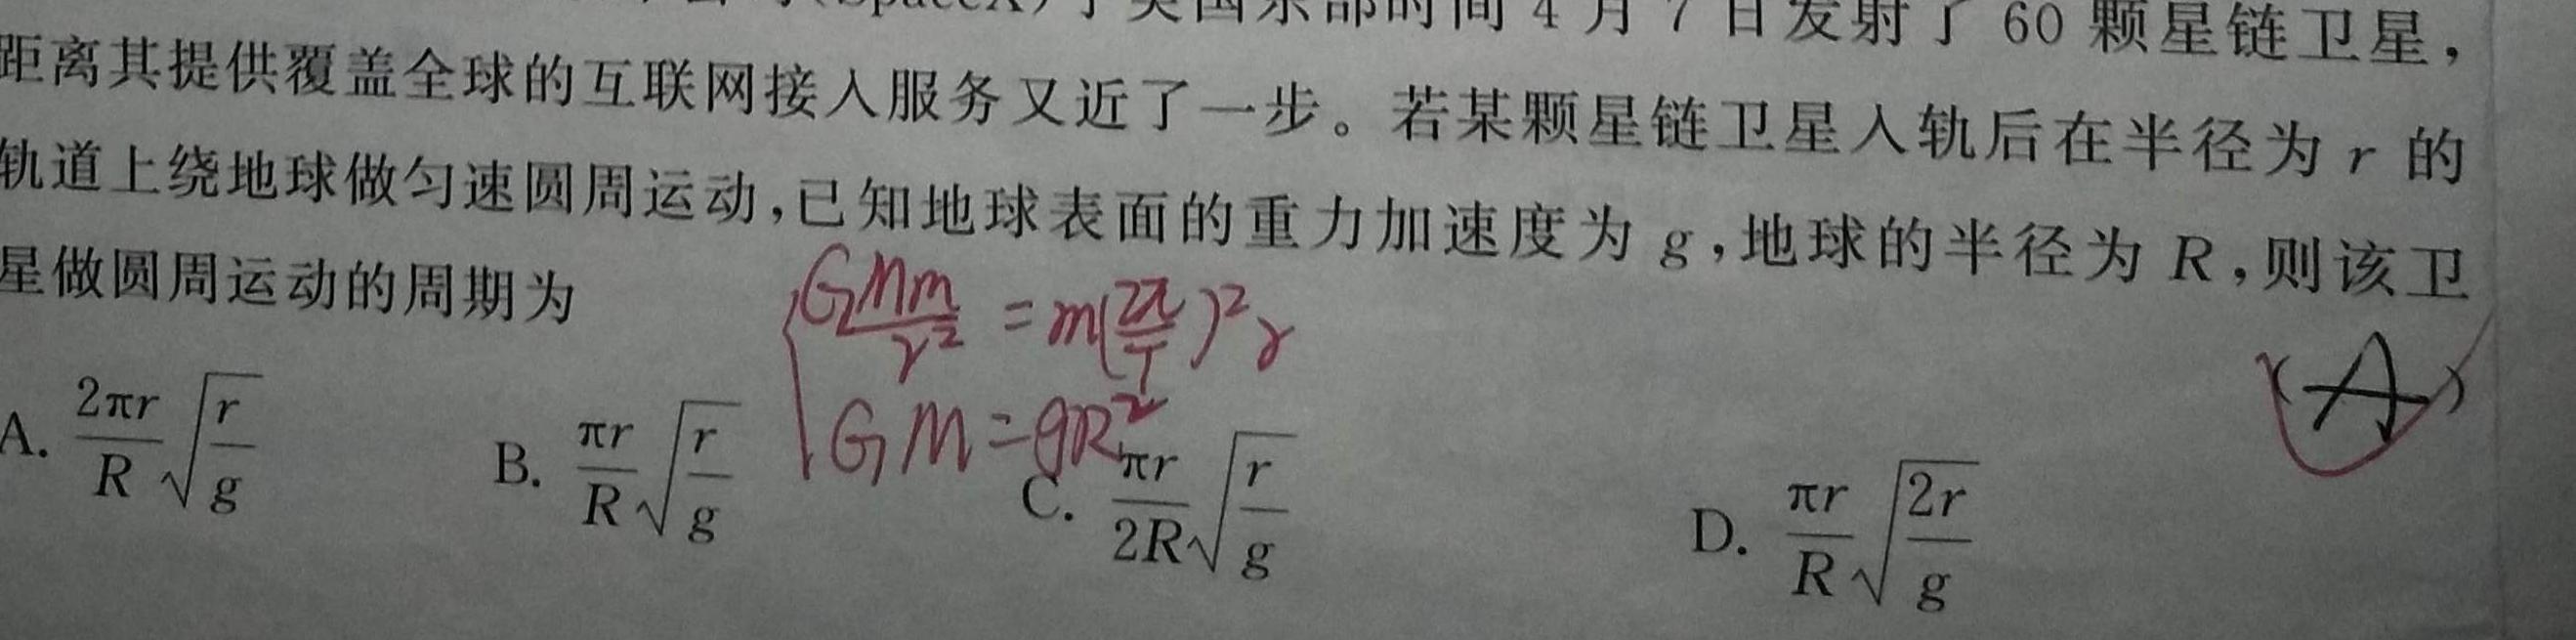 (SpaceX)于美国东部时间 4 月 7 日发射了 60 颗星链卫星，
距离其提供覆盖全球的互联网接入服务又近了一步。若某颗星链卫星入轨后在半径为 r 的
轨道上绕地球做匀速圆周运动，已知地球表面的重力加速度为 g，地球的半径为 R，则该卫
星做圆周运动的周期为
GMm/r² = m(2π/T)²r
GM=gR²
(A)
A. 2πr/R √(r/g) B. πr/R √(r/g) C. πr/2R √(r/g) D. πr/R √(2r/g)